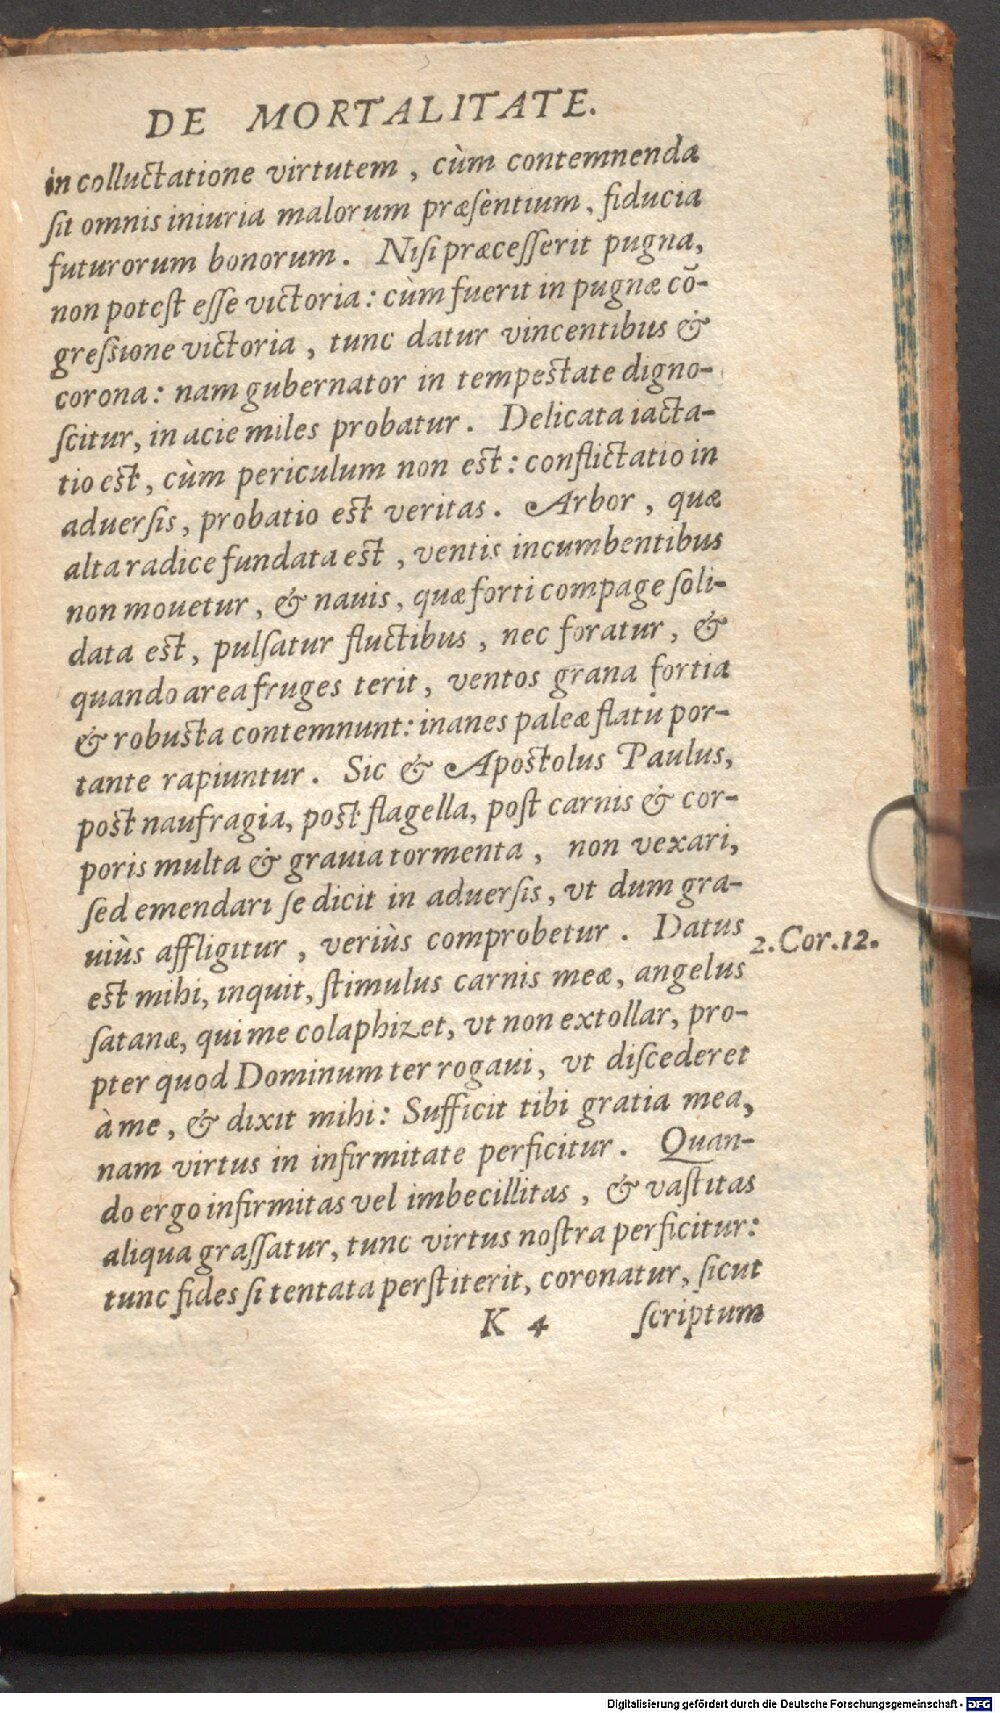 DE MORTALITATE.
in colluctatione virtutem, cùm contemnenda
ſit omnis iniuria malorum præſentium, fiducia
futurorum bonorum. Niſi præceſſerit pugna,
non poteſt eſſe victoria: cùm fuerit in pugnæ cō-
greſsione victoria, tunc datur vincentibus &
corona: nam gubernator in tempeſtate digno-
ſcitur, in acie miles probatur. Delicata iacta-
tio eſt, cùm periculum non eſt: conflictatio in
aduerſis, probatio eſt veritas. Arbor, quæ
alta radice fundata eſt, ventis incumbentibus
non mouetur, & nauis, quæ forti compage ſoli-
data eſt, pulſatur fluctibus, nec foratur, &
quando area fruges terit, ventos grana fortia
& robuſta contemnunt: inanes paleæ flatu por-
tante rapiuntur. Sic & Apoſtolus Paulus,
poſt naufragia, poſt flagella, poſt carnis & cor-
poris multa & grauia tormenta, non vexari,
ſed emendari ſe dicit in aduerſis, vt dum gra-
uiùs affligitur, veriùs comprobetur. Datus
2.Cor.12.
eſt mihi, inquit, ſtimulus carnis meæ, angelus
ſatanæ, qui me colaphizet, vt non extollar, pro-
pter quod Dominum ter rogaui, vt diſcederet
à me, & dixit mihi: Sufficit tibi gratia mea,
nam virtus in infirmitate perficitur. Quan-
do ergo infirmitas vel imbecillitas, & vaſtitas
aliqua graſſatur, tunc virtus noſtra perficitur:
tunc fides ſi tentata perſtiterit, coronatur, ſicut
K 4 ſcriptum
Digitalisierung gefördert durch die Deutsche Forschungsgemeinschaft - DFG